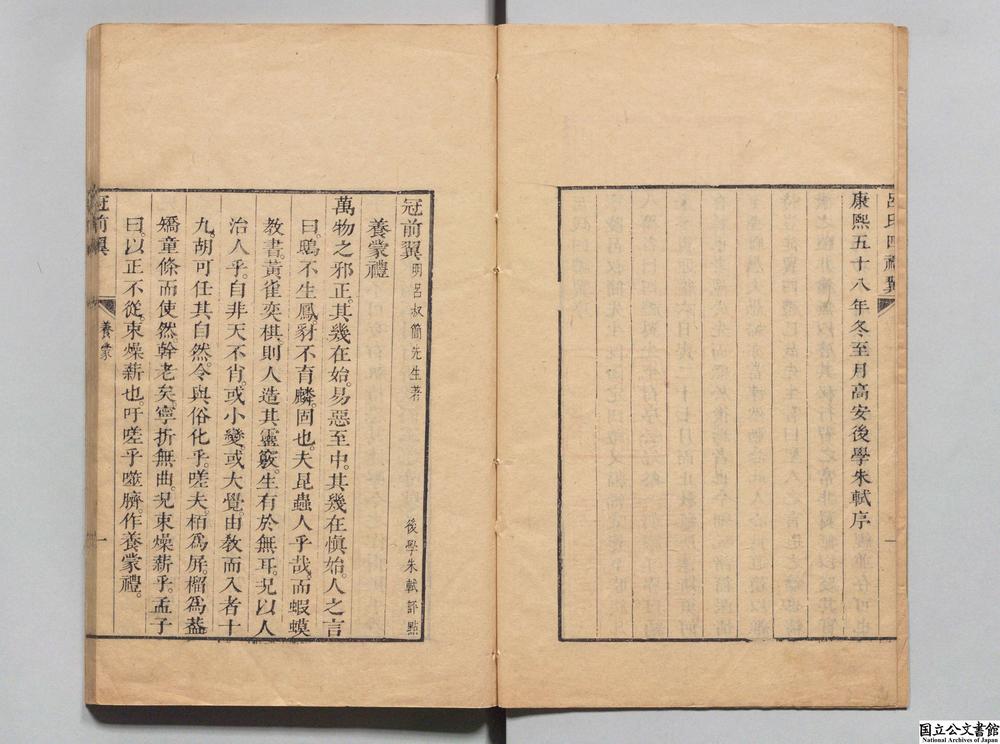 呂氏四禮翼
康熙五十八年冬至月高安後學朱軾序
冠前翼 明呂叔簡先生著 後學朱軾評點
養蒙禮
萬物之邪正。其幾在始。易惡至中。其幾在慎始。人之言
曰。鴟不生鳳。豺不育麟。固也。夫昆蟲人乎哉。而蝦蟆
教書。黃雀奕棋。則人造其靈竅。生有於無耳。況以人
治人乎。自非天不肖。或小變。或大覺。由教而入者十
九。胡可任其自然。令與俗化乎。嗟夫。栢為屏。榴為葢
矯童條而使然。幹老矣。寧折無曲。況束燥薪乎。孟子
曰。以正不從。束燥薪也。吁嗟乎噬臍。作養蒙禮。
冠前翼 養蒙 一
国立公文書館
National Archives of Japan